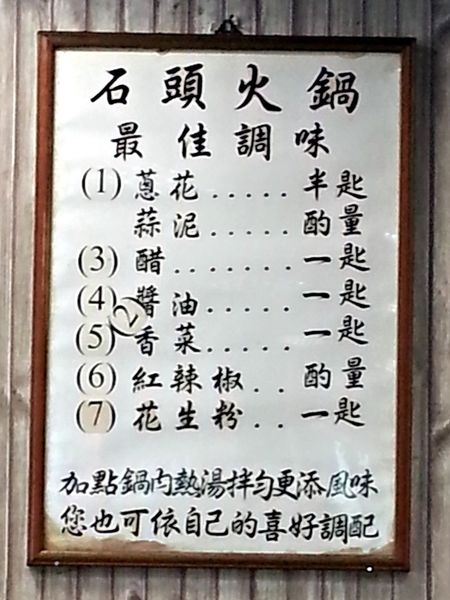 石頭火鍋
最佳調味
(1) 蔥花..... 半匙
蒜泥..... 酌量
(3) 醋....... 一匙
(4) 醬油..... 一匙
(2)
(5) 香菜..... 一匙
(6) 紅辣椒.. 酌量
(7) 花生粉.. 一匙
加點鍋內熱湯拌勻更添風味
您也可依自己的喜好調配